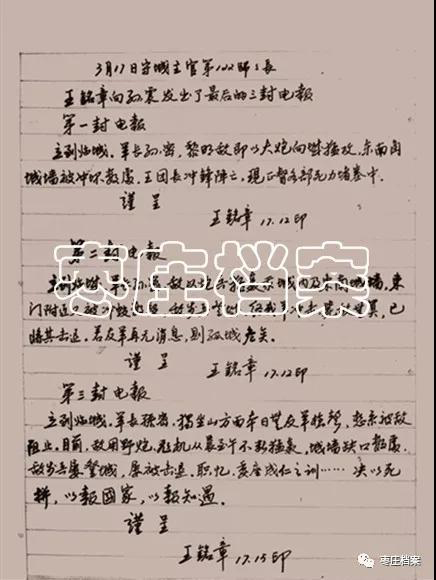 3月17日守城主官第122师师长
王铭章向孙震发出了最后的三封电报
第一封电报
立到临城。军长孙密，黎明敌即以大炮向城猛攻，东南角
城墙被冲坏数处，王团长冲锋阵亡，现正督各部死力堵塞中。
谨呈
王铭章 17.12印
第二封电报
城内及东南城墙，东
门附近
将其击退。若友军再无消息，则孤城危矣。
谨呈
王铭章 17.12印
第三封电报
立到临城。军长孙密，独坐山方面本日无友军枪声，想系被敌
阻止。目前，敌用野炮、飞机从晨至午不断猛轰，城墙缺口数处，
敌步兵屡登城，屡被击退。职忆委座成仁之训……决以死
拼，以报国家，以报知遇。
谨呈
王铭章 17.15印
枣庄档案
枣庄档案